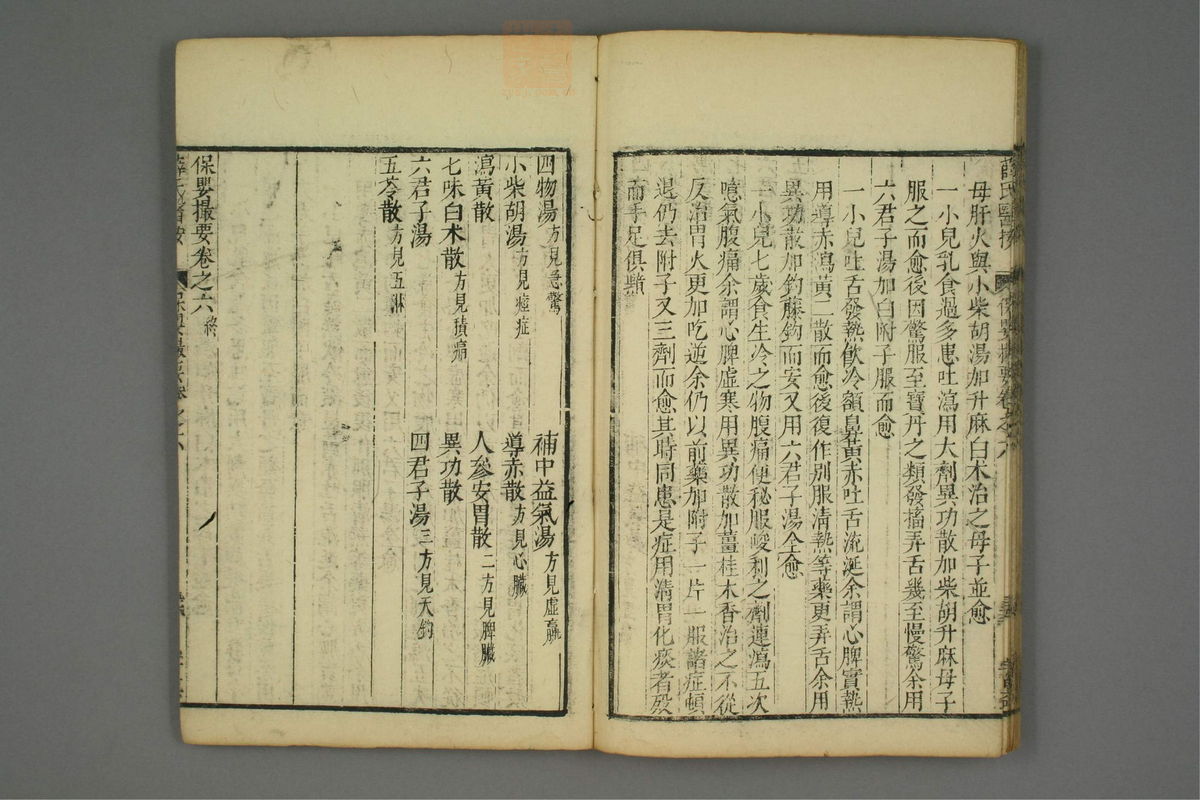 薛氏醫按 保嬰撮要卷之六
母肝火與小柴胡湯加升麻白朮治之母子並愈
一小兒乳食過多患吐瀉用大劑異功散加柴胡升麻母子
服之而愈後因驚服至寶丹之類發搐弄舌幾至慢驚余用
六君子湯加白附子服而愈
一小兒吐舌發熱飲冷額鼻黃赤吐舌流涎余謂心脾實熱
用導赤瀉黃二散而愈後復作別服清熱等藥更弄舌余用
異功散加鈎藤鈎而安又用六君子湯全愈
一小兒七歲食生冷之物腹痛便秘服峻利之劑連瀉五次
噫氣腹痛余謂心脾虛寒用異功散加薑桂木香治之不從
反治胃火更加吃逆余仍以前藥加附子一片一服諸症頓
退仍去附子又三劑而愈其時同患是症用清胃化痰者歿
而手足俱顯
四物湯方見急驚 補中益氣湯方見虛羸
小柴胡湯方見痙症 導赤散方見心臟
瀉黃散 人參安胃散二方見脾臟
七味白朮散方見積痛 異功散
六君子湯 四君子湯三方見天釣
五苓散方見五淋
保嬰撮要卷之六終